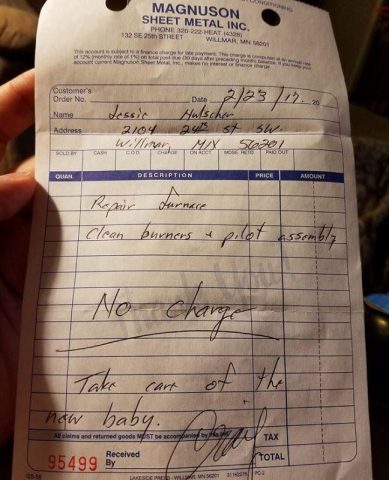 CONDITIONING
MAGNUSON
SHEET METAL INC.
PHONE 320-222-HEAT (4328)
132 SE 28th STREET WILLMAR, MN 56201
This account is subject to a finance charge for late payment. This charge is computed at an annual rate
of 12% (monthly rate of 1%) on total past due
account current Magnuson Sheet Metal, Inc., makes no interest or finance charge.
Customer's
Order No. Date 2/23/17 20
Name Jessie Hulscher
Address 2104 24th St SW.
Willmar MN 56201
SOLD BY CASH C.O.D. CHARGE ON ACCT. MDSE. RETD PAID OUT
QUAN. DESCRIPTION PRICE AMOUNT
Repair furnace
Clean burners + pilot assembly
No charge
Take care of the
new baby.
All claims and returned goods MUST be accompanied by this bill.
TAX
95499 Received
By TOTAL
GS-58 LAKESIDE PRESS - WILLMAR, MN 56201 PC-2